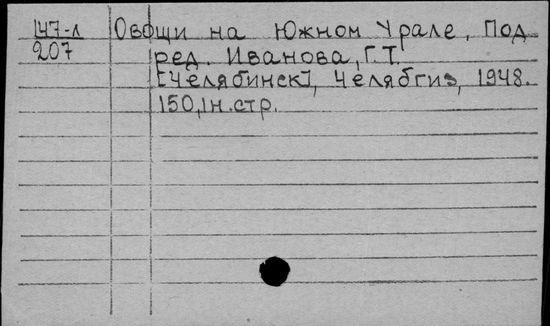 147-л Овощи на Южном Урале, Под
207 ред. Иванова, Г.Т.
[Челябинск], Челябгиз, 1948.
150,1н.стр.